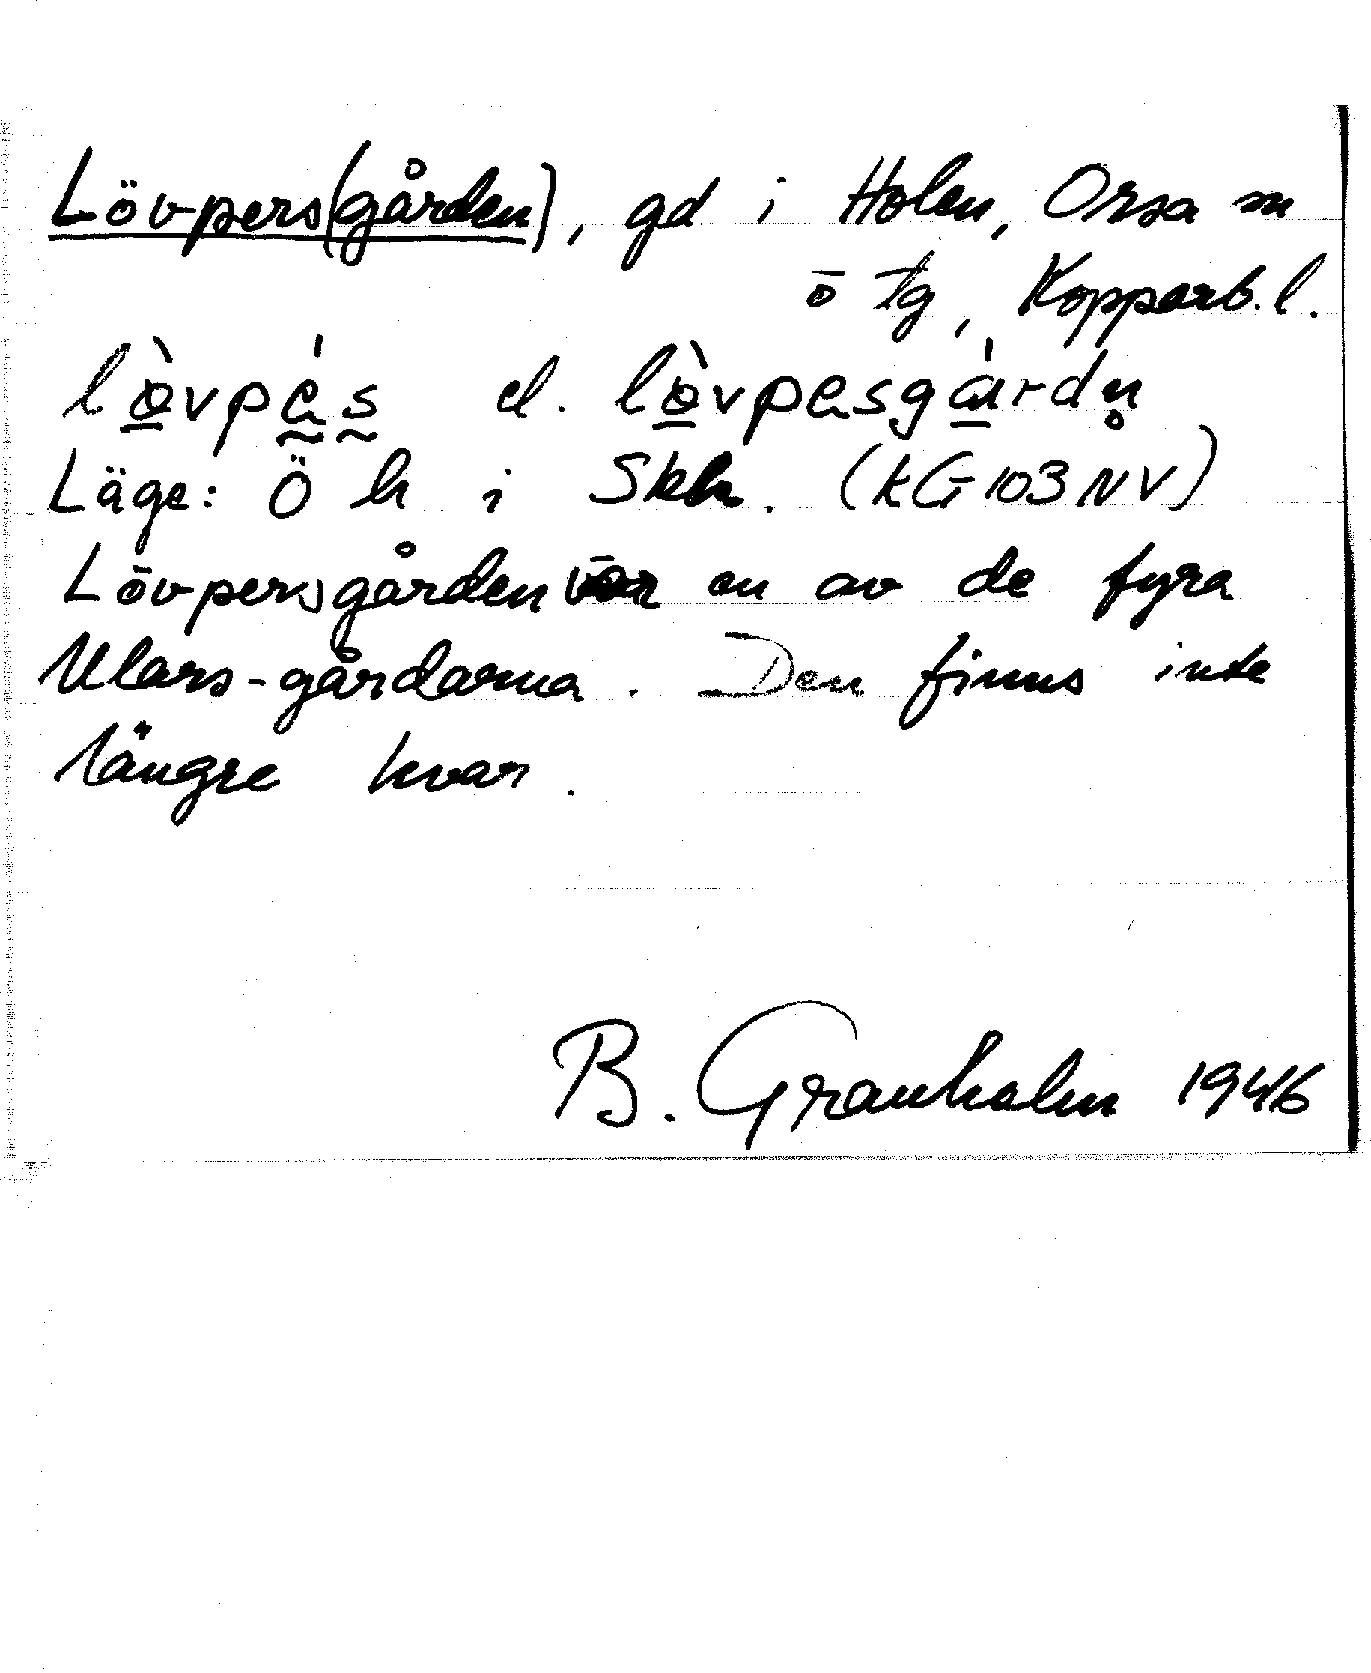 Lövpers(gården), gd i Holen, Orsa sn
ö tg, Kopparb. l.
lö̀vpés el. lö̀vpesgárdn̥
Läge: Ö h i Skh. (kG 103 NV)
Lövpersgården var en av de fyra
Ulars-gårdarna. Den finns inte
längre kvar.
B. Granholm 1946